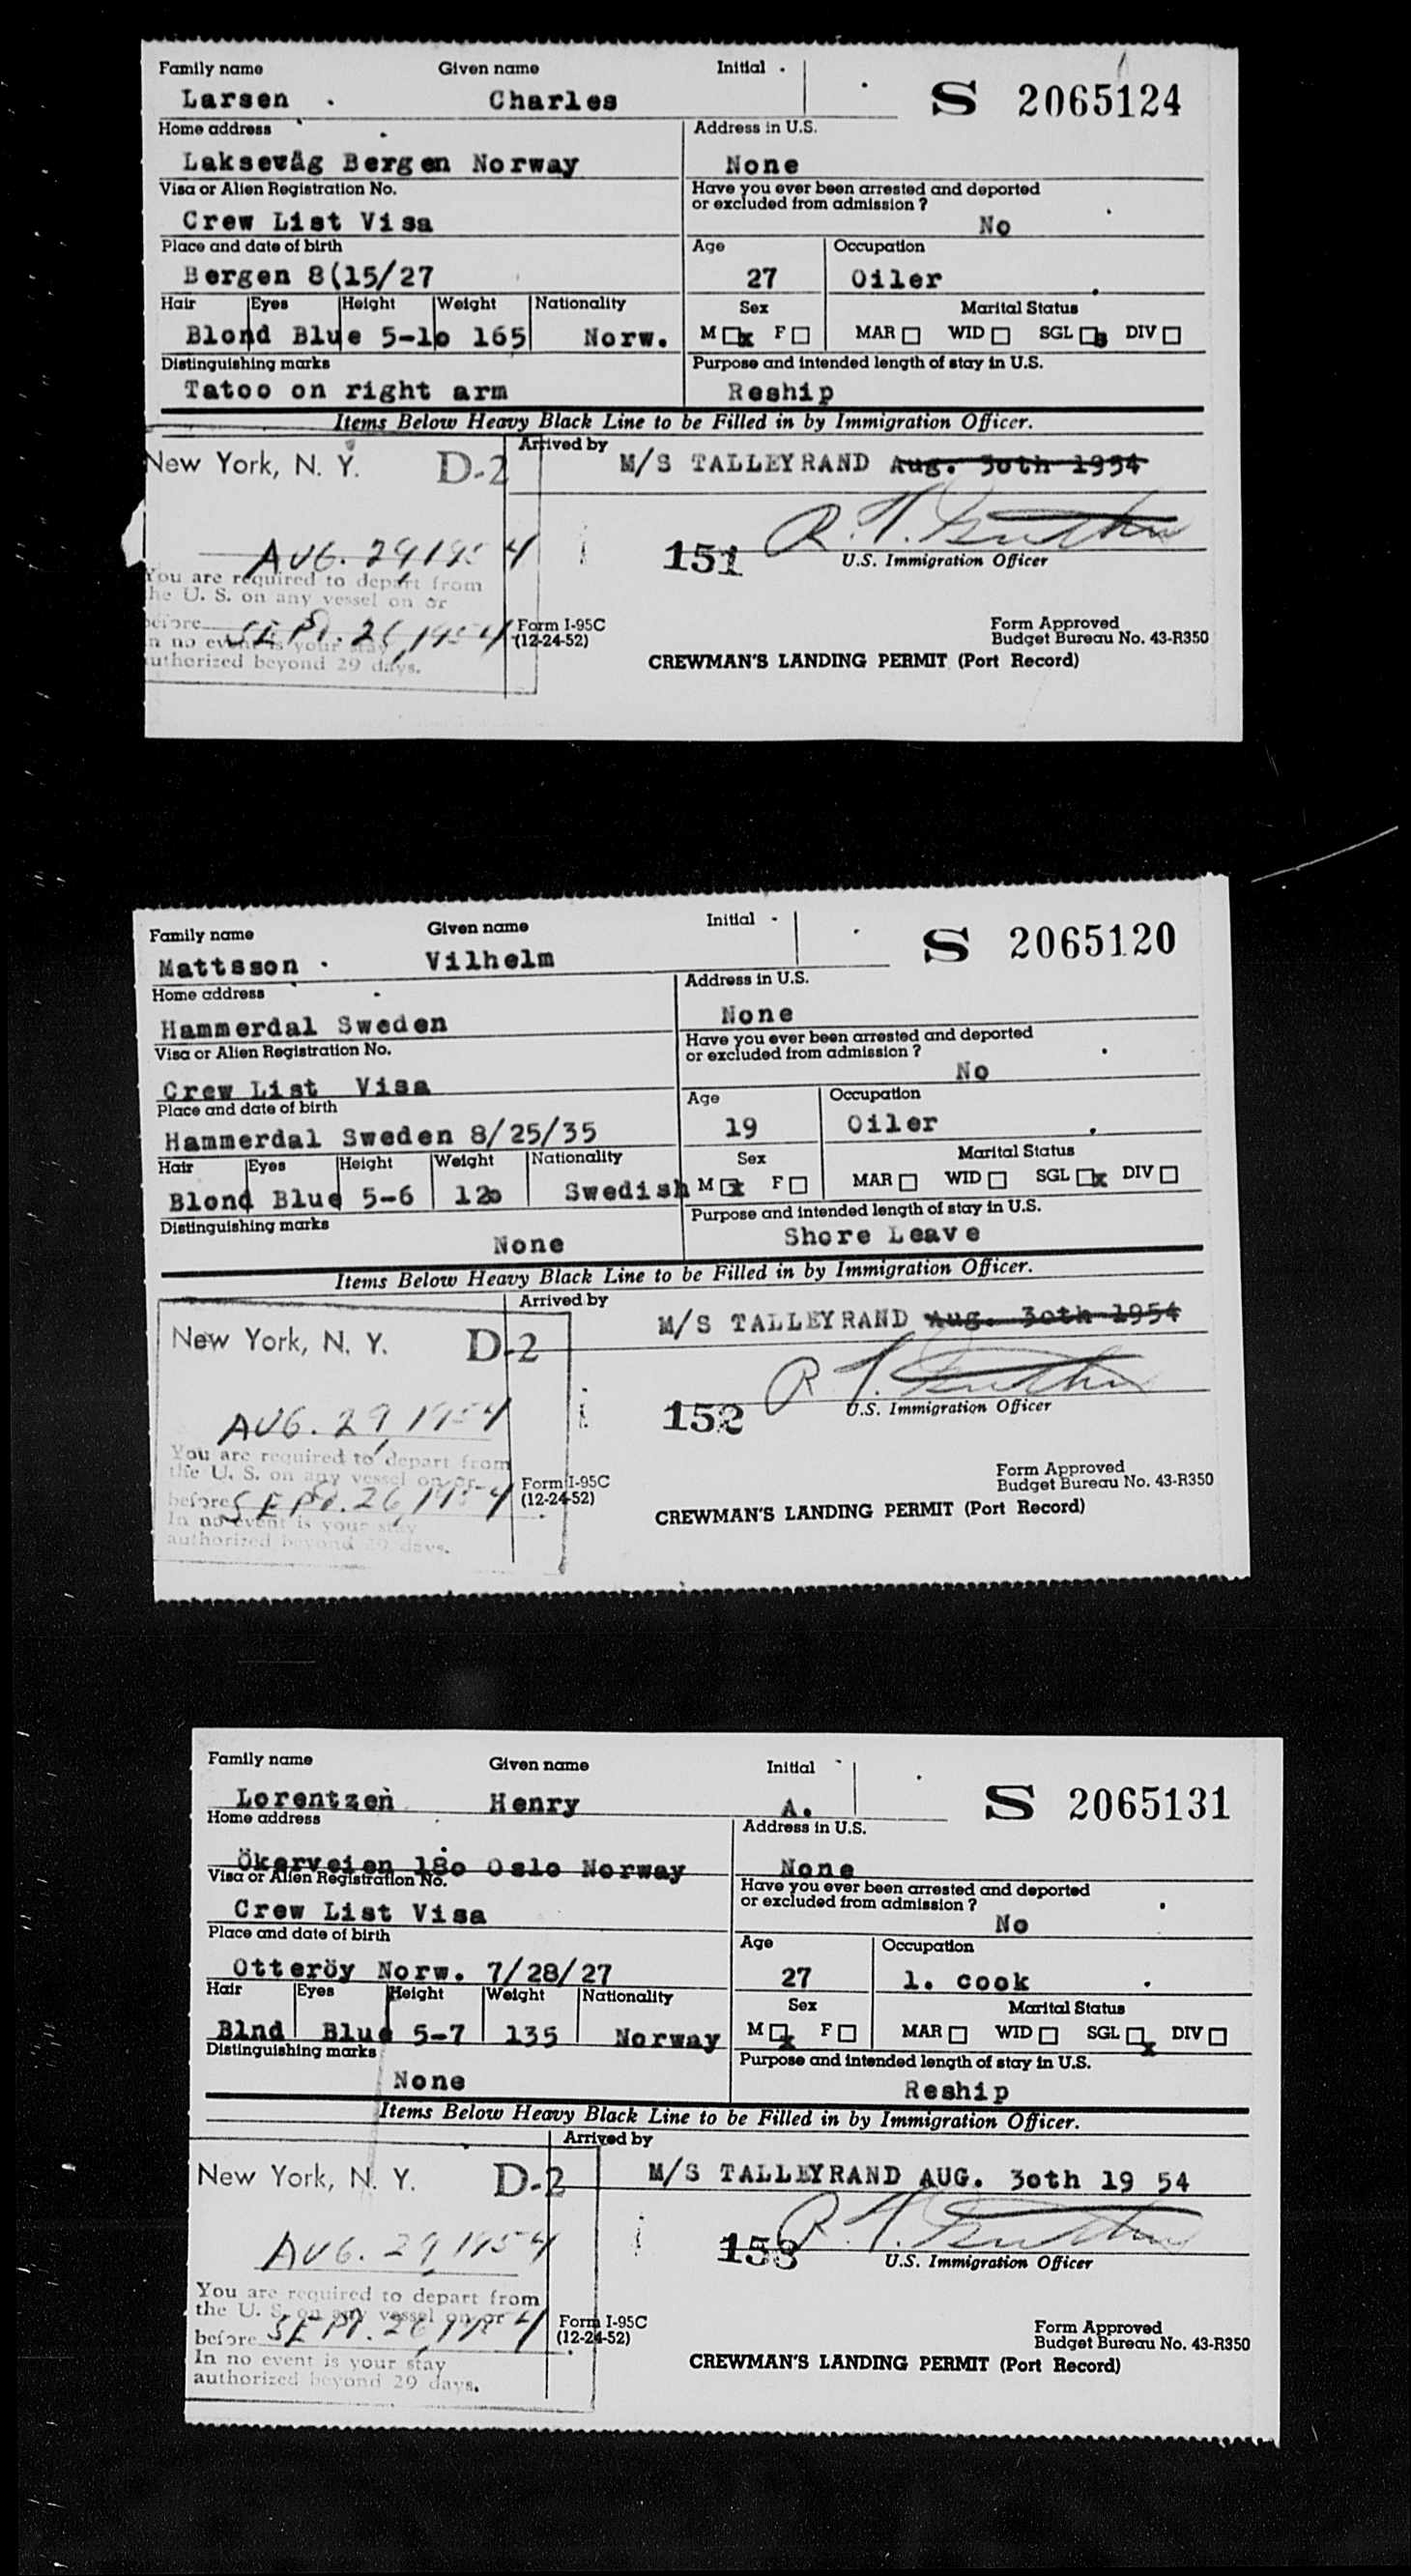 Family name Given name Initial
Larsen Charles S 2065124
Home address Address in U.S.
Laksevåg Bergen Norway None
Visa or Alien Registration No. Have you ever been arrested and deported
or excluded from admission ?
Crew List Visa No
Place and date of birth Age Occupation
Bergen 8(15/27 27 Oiler
Hair Eyes Height Weight Nationality Sex Marital Status
Blond Blue 5-1o 165 Norw. M x F MAR WID SGL x DIV
Distinguishing marks Purpose and intended length of stay in U.S.
Tatoo on right arm Reship
Items Below Heavy Black Line to be Filled in by Immigration Officer.
Arrived by
New York, N. Y. D-2 M/S TALLEYRAND Aug. 3oth 1954
AUG. 29, 1954 151
U.S. Immigration Officer
You are required to depart from
the U. S. on any vessel on or
before SEPT. 26, 1954 Form I-95C Form Approved
In no event is your stay (12-24-52) Budget Bureau No. 43-R350
authorized beyond 29 days. CREWMAN'S LANDING PERMIT (Port Record)
Family name Given name Initial
Mattsson Vilhelm S 2065120
Home address Address in U.S.
Hammerdal Sweden None
Visa or Alien Registration No. Have you ever been arrested and deported
or excluded from admission ?
Crew List Visa No
Place and date of birth Age Occupation
Hammerdal Sweden 8/25/35 19 Oiler
Hair Eyes Height Weight Nationality Sex Marital Status
Blond Blue 5-6 12o Swedish M x F MAR WID SGL x DIV
Distinguishing marks Purpose and intended length of stay in U.S.
None Shore Leave
Items Below Heavy Black Line to be Filled in by Immigration Officer.
Arrived by
New York, N. Y. D-2 M/S TALLEYRAND Aug. 3oth 1954
AUG. 29, 1954 152
U.S. Immigration Officer
You are required to depart from
the U. S. on any vessel on or
before SEPT. 26, 1954 Form I-95C Form Approved
In no event is your stay (12-24-52) Budget Bureau No. 43-R350
authorized beyond 29 days. CREWMAN'S LANDING PERMIT (Port Record)
Family name Given name Initial
Lorentzen Henry A. S 2065131
Home address Address in U.S.
Ökerveien 18o Oslo Norway None
Visa or Alien Registration No. Have you ever been arrested and deported
or excluded from admission ?
Crew List Visa No
Place and date of birth Age Occupation
Otteröy Norw. 7/28/27 27 1. cook
Hair Eyes Height Weight Nationality Sex Marital Status
Blnd Blue 5-7 135 Norway M x F MAR WID SGL x DIV
Distinguishing marks Purpose and intended length of stay in U.S.
None Reship
Items Below Heavy Black Line to be Filled in by Immigration Officer.
Arrived by
New York, N. Y. D-2 M/S TALLEYRAND AUG. 3oth 19 54
AUG. 29, 1954 153
U.S. Immigration Officer
You are required to depart from
the U. S. on any vessel on or
before SEPT. 26, 1954 Form I-95C Form Approved
In no event is your stay (12-24-52) Budget Bureau No. 43-R350
authorized beyond 29 days. CREWMAN'S LANDING PERMIT (Port Record)